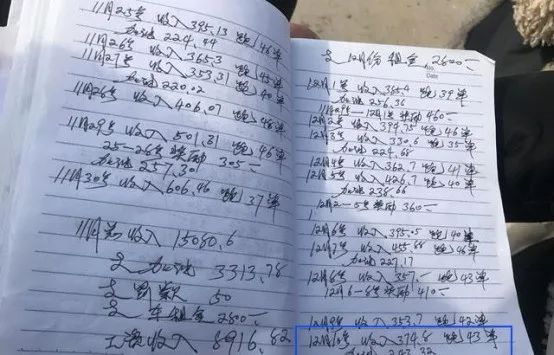 11月25号 收入 395.13 跑 48单
加油 224.44
11月26号 收入 365.3
11月27号 收入 353.31 跑 43单
加油 220.02 跑 40单
11月28号 收入 406.07 跑 48单
11月29号 收入 501.31 跑 46单
25-28号 奖励 305.-
加油 257.30
11月30号 收入 606.46 跑 37单
11月总收入 15080.6
支 加油 3313.78
支 罚款 50
支 车租金 2800.-
工资收入 8916.82
支 12月份 租金 2800.-
Date
12月1号 收入 365.4 跑 39单
加油 256.36
11月29号-12月1号 奖励 460.-
12月2号 收入 394.75 跑 46单
12月3号 收入 330.6 跑 35单
加油 224.68
12月4号 收入 362.7 跑 41单
12月5号 收入 426.7 跑 40单
加油 238.66
12月2-5号 奖励 360.-
12月6号 收入 395.05 跑 40单
12月7号 收入 455.88 跑 46单
加油 227.17
12月8号 收入 357.- 跑 43单
12月6-8号 奖励 410.-
12月9号 收入 353.7 跑 42单
12月10号 收入 374.8 跑 43单
加油 243.32